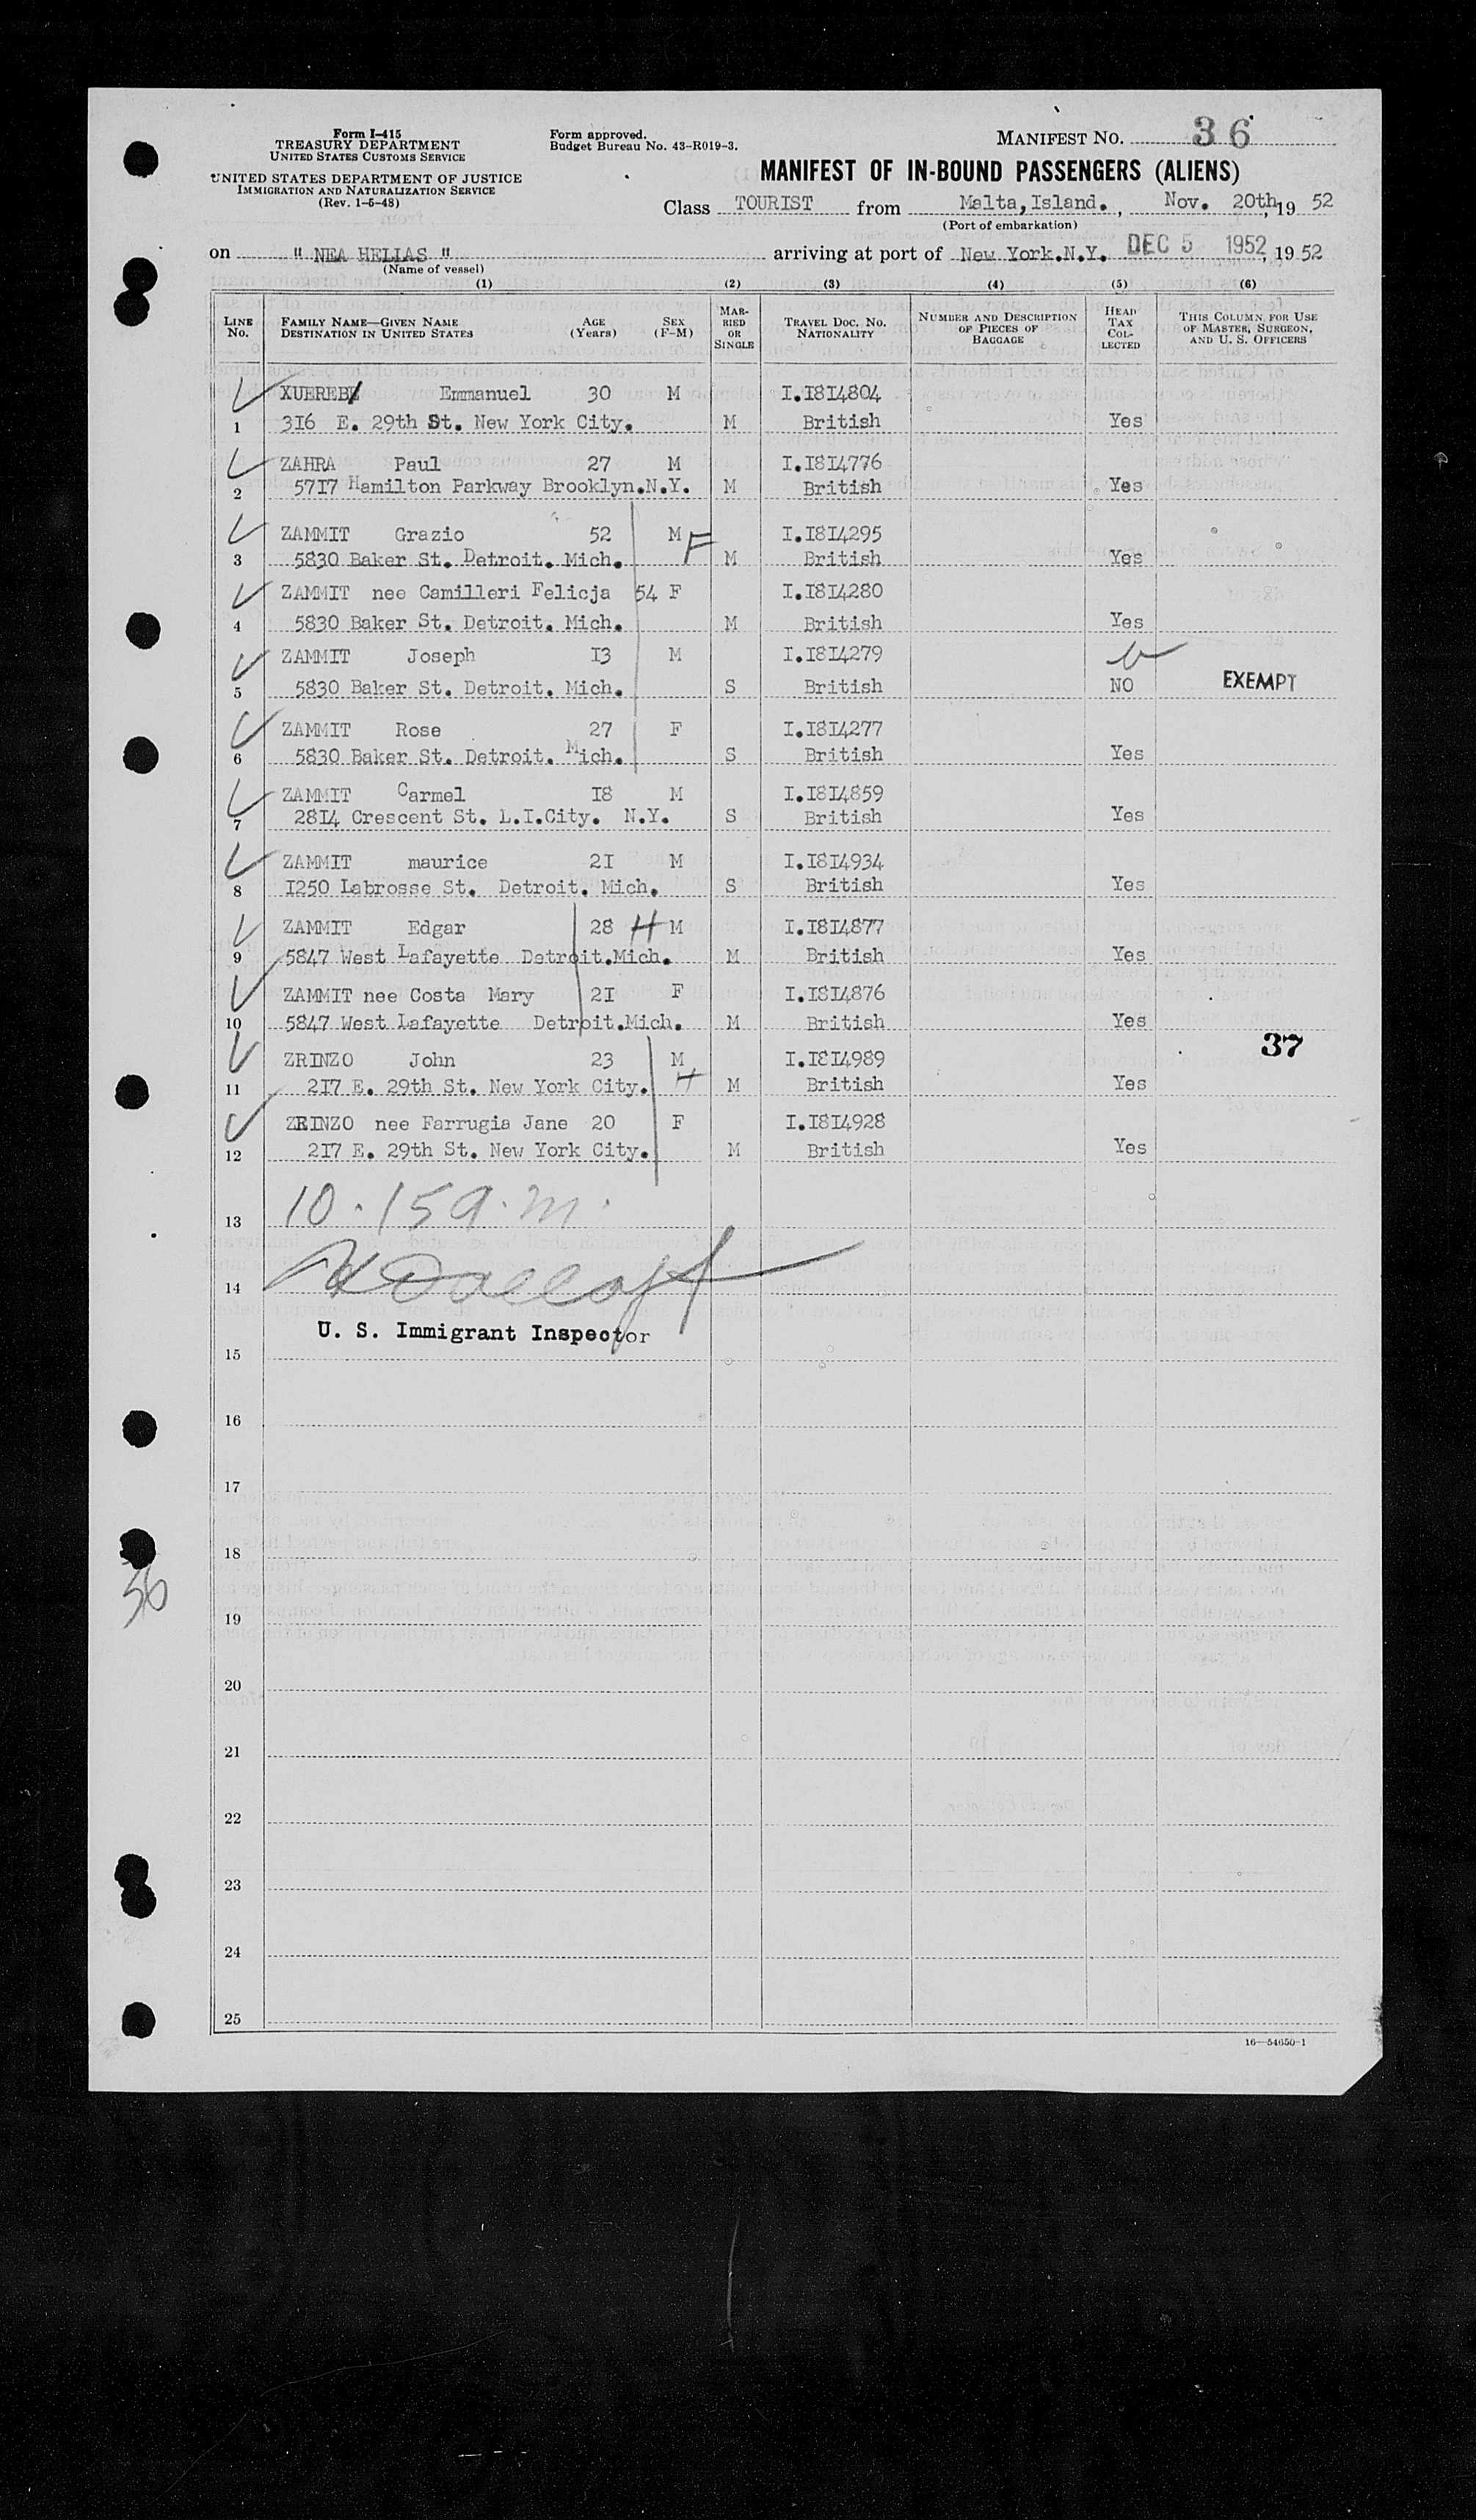 Form I-415
TREASURY DEPARTMENT
UNITED STATES CUSTOMS SERVICE
UNITED STATES DEPARTMENT OF JUSTICE
IMMIGRATION AND NATURALIZATION SERVICE
(Rev. 1-5-48)
Form approved.
Budget Bureau No. 43-R019-3.
MANIFEST NO. 36
MANIFEST OF IN-BOUND PASSENGERS (ALIENS)
Class TOURIST from Malta, Island., Nov. 20th, 19 52
(Port of embarkation)
on " NEA HELLAS " arriving at port of New York.N.Y. DEC 5 1952, 19 52
(Name of vessel)
(1) (2) (3) (4) (5) (6)
LINE NO. FAMILY NAME—GIVEN NAME DESTINATION IN UNITED STATES AGE (Years) SEX (F-M) MARRIED OR SINGLE TRAVEL DOC. NO. NATIONALITY NUMBER AND DESCRIPTION OF PIECES OF BAGGAGE HEAD TAX COLLECTED THIS COLUMN FOR USE OF MASTER, SURGEON, AND U. S. OFFICERS
XUEREB Emmanuel 30 M I.I8I4804
1 3I6 E. 29th St. New York City. M British Yes
ZAHRA Paul 27 M I.I8I4776
2 57I7 Hamilton Parkway Brooklyn.N.Y. M British Yes
ZAMMIT Grazio 52 M F I.I8I4295
3 5830 Baker St. Detroit. Mich. M British Yes
ZAMMIT nee Camilleri Felicja 54 F I.I8I4280
4 5830 Baker St. Detroit. Mich. M British Yes
ZAMMIT Joseph I3 M I.I8I4279
5 5830 Baker St. Detroit. Mich. S British NO EXEMPT
ZAMMIT Rose 27 F I.I8I4277
6 5830 Baker St. Detroit. Mich. S British Yes
ZAMMIT Carmel I8 M I.I8I4859
7 28I4 Crescent St. L.I.City. N.Y. S British Yes
ZAMMIT maurice 2I M I.I8I4934
8 I250 Labrosse St. Detroit. Mich. S British Yes
ZAMMIT Edgar 28 H M I.I8I4877
9 5847 West Lafayette Detroit.Mich. M British Yes
ZAMMIT nee Costa Mary 2I F I.I8I4876
10 5847 West Lafayette Detroit.Mich. M British Yes
37
ZRINZO John 23 M I.I8I4989
11 2I7 E. 29th St. New York City. H M British Yes
ZRINZO nee Farrugia Jane 20 F I.I8I4928
12 2I7 E. 29th St. New York City. M British Yes
13 10.15 a.m.
14
U. S. Immigrant Inspector
15
16
17
18
56
19
20
21
22
23
24
25
16—54650-1